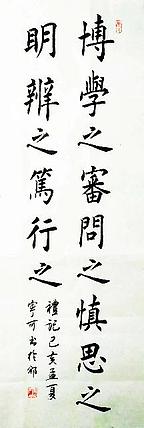 博學之審問之慎思之
明辨之篤行之
禮記己亥孟夏
寧可書於